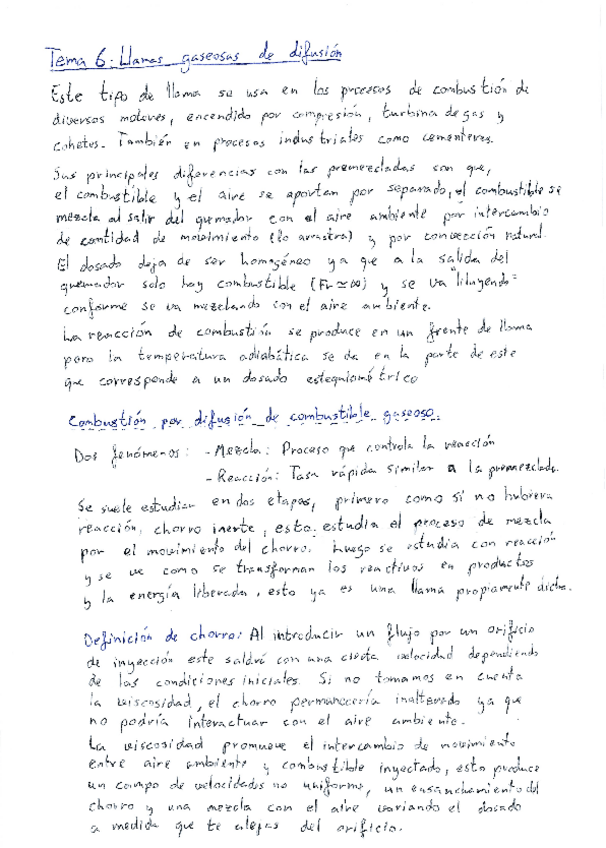 Tema 6: Llamas gaseosas de difusión
Este tipo de llama se usa en los procesos de combustión de
diversos motores, encendido por compresión, turbina de gas y
cohetes. También en procesos industriales como cementeras.
Sus principales diferencias con las premezcladas son que,
el combustible y el aire se aportan por separado, el combustible se
mezcla al salir del quemador con el aire ambiente por intercambio
de cantidad de movimiento (lo arrastra) y por convección natural.
El dosado deja de ser homogéneo ya que a la salida del
quemador solo hay combustible (Fr≃∞) y se va "diluyendo"
conforme se va mezclando con el aire ambiente.
La reacción de combustión se produce en un frente de llama
pero la temperatura adiabática se da en la parte de este
que corresponde a un dosado estequiométrico
Combustión por difusión de combustible gaseoso.
Dos fenómenos: - Mezcla: Proceso que controla la reacción
- Reacción: Tasa rápida similar a la premezclada.
Se suele estudiar en dos etapas, primero como si no hubiera
reacción, chorro inerte, esto estudia el proceso de mezcla
por el movimiento del chorro. Luego se estudia con reacción
y se ve como se transforman los reactivos en productos
y la energía liberada, esto ya es una llama propiamente dicha.
Definición de chorro: Al introducir un flujo por un orificio
de inyección este saldrá con una cierta velocidad dependiendo
de las condiciones iniciales. Si no tomamos en cuenta
la viscosidad, el chorro permanecería inalterado ya que
no podría interactuar con el aire ambiente.
La viscosidad promueve el intercambio de movimiento
entre aire ambiente y combustible inyectado, esto produce
un campo de velocidades no uniforme, un ensanchamiento del
chorro y una mezcla con el aire variando el dosado
a medida que te alejas del orificio.